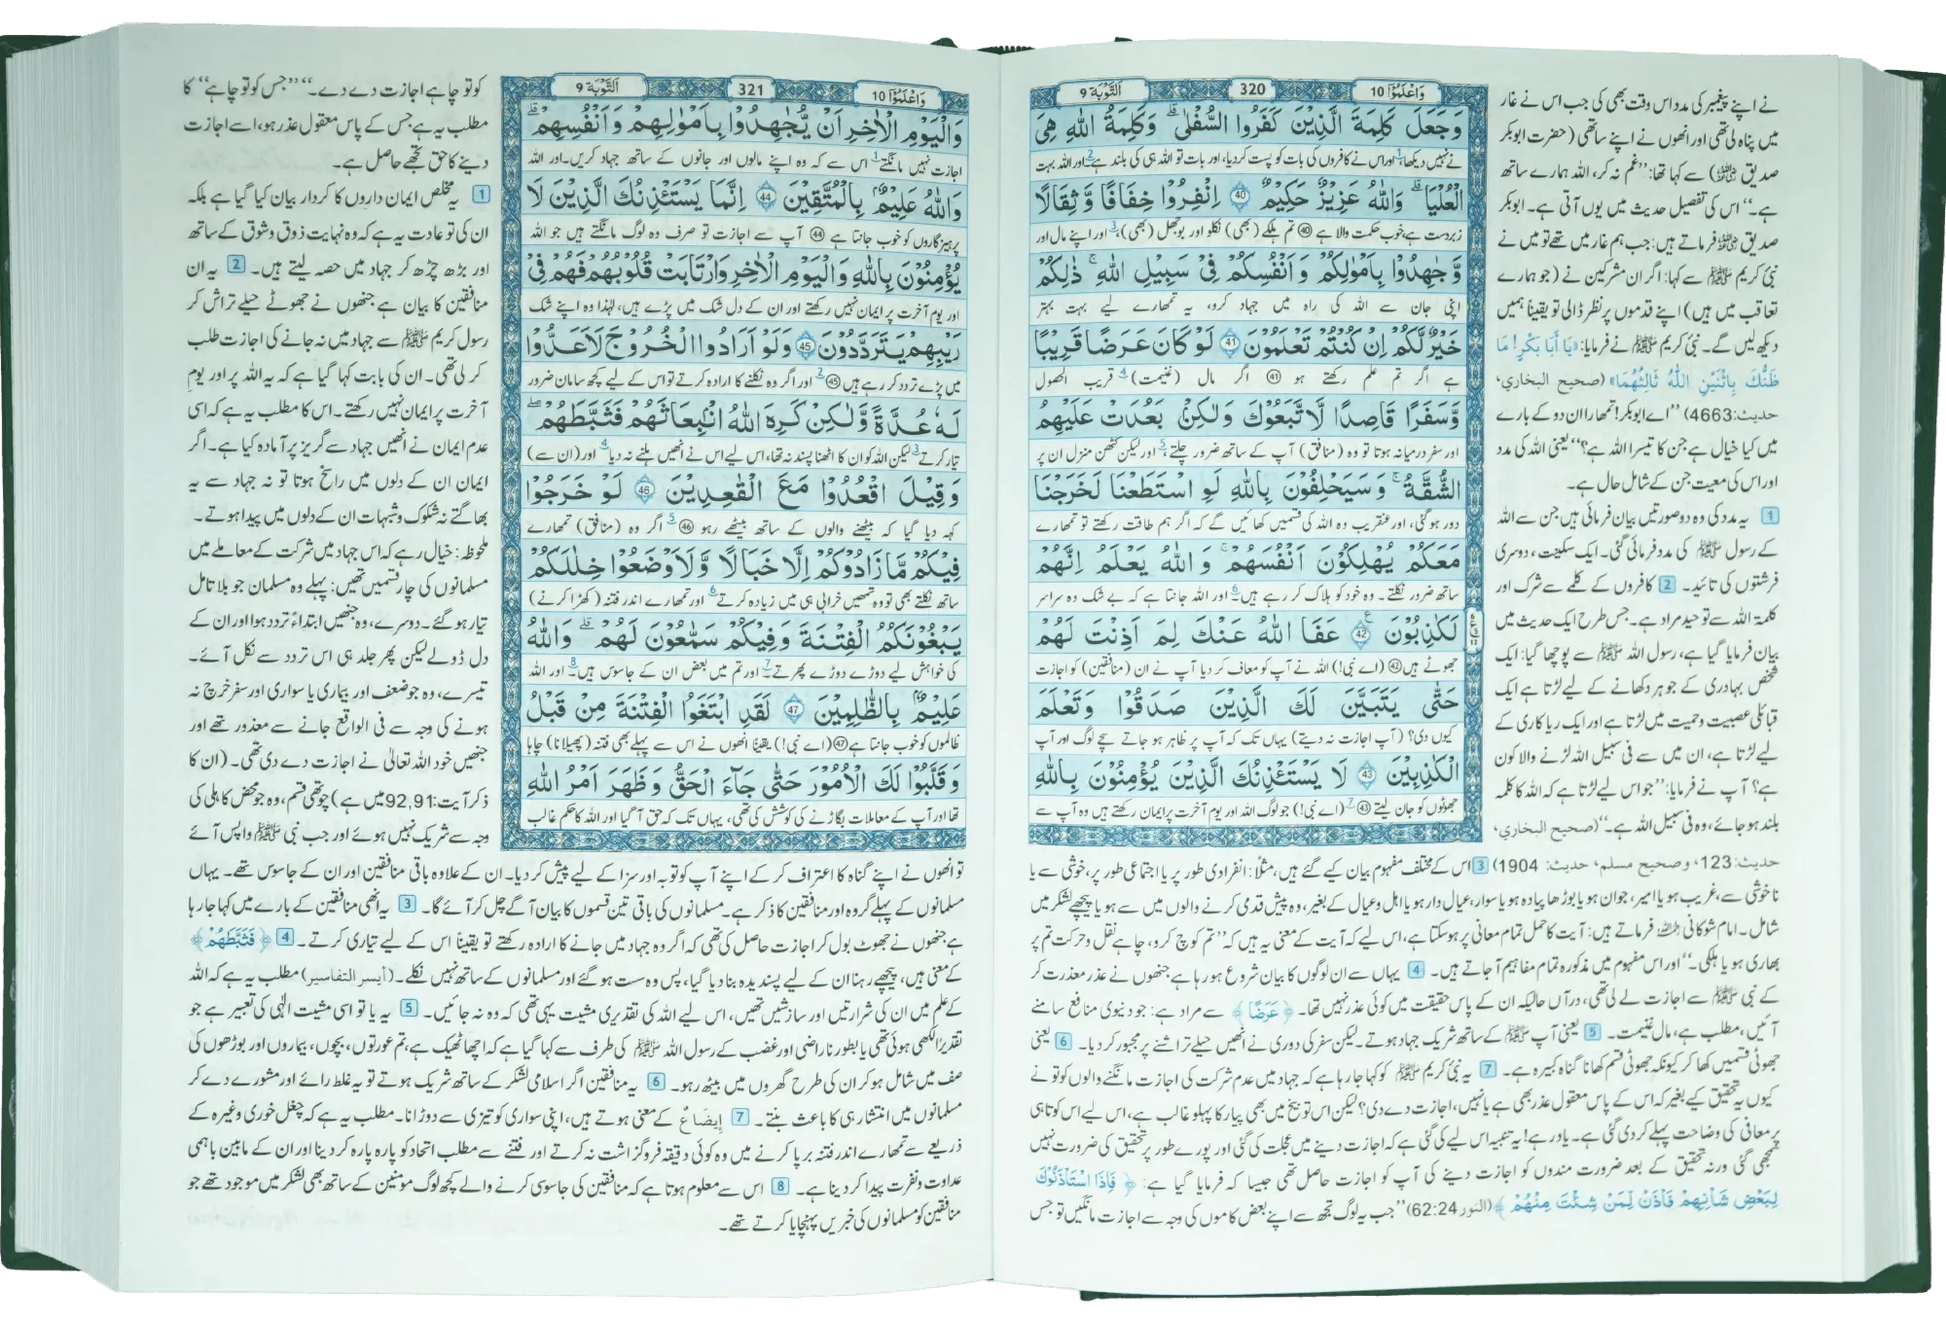 التَّوْبَة 9
320
وَاعْلَمُوْٓا 10
وَجَعَلَ كَلِمَةَ الَّذِيْنَ كَفَرُوا السُّفْلٰى ۗ وَكَلِمَةُ اللّٰهِ هِىَ
نے نہیں دیکھا، اور اس نے کافروں کی بات کو پست کر دیا، اور بات تو اللہ ہی کی بلند ہے اور اللہ بہت
الْعُلْيَا ۗ وَاللّٰهُ عَزِيْزٌ حَكِيْمٌ 40 اِنْفِرُوْا خِفَافًا وَّثِقَالًا
زبردست ہے، خوب حکمت والا ہے 40 تم ہلکے (بھی) نکلو اور بوجھل (بھی)، اور اپنے مال اور
وَّجٰهِدُوْا بِاَمْوٰلِكُمْ وَاَنْفُسِكُمْ فِىْ سَبِيْلِ اللّٰهِ ۚ ذٰلِكُمْ
اپنی جان سے اللہ کی راہ میں جہاد کرو، یہ تمھارے لیے بہت بہتر
خَيْرٌ لَّكُمْ اِنْ كُنْتُمْ تَعْلَمُوْنَ 41 لَوْ كَانَ عَرَضًا قَرِيْبًا
ہے اگر تم علم رکھتے ہو 41 اگر مال (غنیمت) قریب الحصول
وَّسَفَرًا قَاصِدًا لَّاتَّبَعُوْكَ وَلٰكِنْۢ بَعُدَتْ عَلَيْهِمُ
اور سفر درمیانہ ہوتا تو وہ (منافق) آپ کے ساتھ ضرور چلتے اور لیکن کٹھن منزل ان پر
الشُّقَّةُ ۚ وَسَيَحْلِفُوْنَ بِاللّٰهِ لَوِ اسْتَطَعْنَا لَخَرَجْنَا
دور ہو گئی، اور عنقریب وہ اللہ کی قسمیں کھائیں گے کہ اگر ہم طاقت رکھتے تو تمھارے
مَعَكُمْ يُهْلِكُوْنَ اَنْفُسَهُمْ ۚ وَاللّٰهُ يَعْلَمُ اِنَّهُمْ
ساتھ ضرور نکلتے۔ وہ خود کو ہلاک کر رہے ہیں۔ اور اللہ جانتا ہے کہ بے شک وہ سراسر
لَكٰذِبُوْنَ 42 عَفَا اللّٰهُ عَنْكَ لِمَ اَذِنْتَ لَهُمْ
جھوٹے ہیں 42 (اے نبی!) اللہ نے آپ کو معاف کر دیا آپ نے ان (منافقین) کو اجازت
حَتّٰى يَتَبَيَّنَ لَكَ الَّذِيْنَ صَدَقُوْا وَتَعْلَمَ
کیوں دی؟ (آپ اجازت نہ دیتے) یہاں تک کہ آپ پر ظاہر ہو جاتے سچے لوگ اور آپ
الْكٰذِبِيْنَ 43 لَا يَسْتَئْذِنُكَ الَّذِيْنَ يُؤْمِنُوْنَ بِاللّٰهِ
جھوٹوں کو جان لیتے 43 (اے نبی!) جو لوگ اللہ اور یوم آخرت پر ایمان رکھتے ہیں وہ آپ سے
نے اپنے پیغمبر کی مدد اس وقت بھی کی جب اس نے غار
میں پناہ لی تھی اور انھوں نے اپنے ساتھی (حضرت ابوبکر
صدیق ؓ) سے کہا تھا: ’’غم نہ کر، اللہ ہمارے ساتھ
ہے۔‘‘ اس کی تفصیل حدیث میں یوں آتی ہے۔ ابوبکر
صدیق ؓ فرماتے ہیں: جب ہم غار میں تھے تو میں نے
نبیٔ کریم ﷺ سے کہا: اگر ان مشرکین نے (جو ہمارے
تعاقب میں ہیں) اپنے قدموں پر نظر ڈالی تو یقیناً ہمیں
دیکھ لیں گے۔ نبیٔ کریم ﷺ نے فرمایا: «يَا أَبَا بَكْرٍ! مَا
ظَنُّكَ بِاثْنَيْنِ اللّٰهُ ثَالِثُهُمَا» (صحيح البخاري،
حدیث: 4663) ’’اے ابوبکر! تمھارا ان دو کے بارے
میں کیا خیال ہے جن کا تیسرا اللہ ہے؟‘‘ یعنی اللہ کی مدد
اور اس کی معیت جن کے شامل حال ہے۔
1 یہ مدد کی وہ دو صورتیں بیان فرمائی ہیں جن سے اللہ
کے رسول ﷺ کی مدد فرمائی گئی۔ ایک سکینت، دوسری
فرشتوں کی تائید۔ 2 کافروں کے کلمے سے شرک اور
کلمۃ اللہ سے توحید مراد ہے۔ جس طرح ایک حدیث میں
بیان فرمایا گیا ہے، رسول اللہ ﷺ سے پوچھا گیا: ایک
شخص بہادری کے جوہر دکھانے کے لیے لڑتا ہے ایک
قبائلی عصبیت و حمیت میں لڑتا ہے اور ایک ریاکاری کے
لیے لڑتا ہے، ان میں سے فی سبیل اللہ لڑنے والا کون
ہے؟ آپ نے فرمایا: ’’جو اس لیے لڑتا ہے کہ اللہ کا کلمہ
بلند ہو جائے، وہ فی سبیل اللہ ہے۔‘‘ (صحيح البخاري،
حديث: 123، وصحيح مسلم، حديث: 1904) 3 اس کے مختلف مفہوم بیان کیے گئے ہیں، مثلاً: انفرادی طور پر یا اجتماعی طور پر، خوشی سے یا
ناخوشی سے، غریب ہو یا امیر، جوان ہو یا بوڑھا پیادہ ہو یا سوار، عیال دار ہو یا اہل و عیال کے بغیر، وہ پیش قدمی کرنے والوں میں سے ہو یا پیچھے لشکر میں
شامل۔ امام شوکانی ؒ فرماتے ہیں: آیت کا حمل تمام معانی پر ہو سکتا ہے، اس لیے کہ آیت کے معنی یہ ہیں کہ ’’تم کوچ کرو، چاہے نقل و حرکت تم پر
بھاری ہو یا ہلکی۔‘‘ اور اس مفہوم میں مذکورہ تمام مفاہیم آ جاتے ہیں۔ 4 یہاں سے ان لوگوں کا بیان شروع ہو رہا ہے جنھوں نے عذر معذرت کر
کے نبی ﷺ سے اجازت لے لی تھی، درآں حالیکہ ان کے پاس حقیقت میں کوئی عذر نہیں تھا۔ ﴿عَرَضًا﴾ سے مراد ہے: جو دنیوی منافع سامنے
آئیں، مطلب ہے، مال غنیمت۔ 5 یعنی آپ ﷺ کے ساتھ شریک جہاد ہوتے۔ لیکن سفر کی دوری نے انھیں حیلے تراشنے پر مجبور کر دیا۔ 6 یعنی
جھوٹی قسمیں کھا کر کیونکہ جھوٹی قسم کھانا گناہ کبیرہ ہے۔ 7 یہ نبیٔ کریم ﷺ کو کہا جا رہا ہے کہ جہاد میں عدم شرکت کی اجازت مانگنے والوں کو تو نے
کیوں یہ تحقیق کیے بغیر کہ اس کے پاس معقول عذر بھی ہے یا نہیں، اجازت دے دی؟ لیکن اس توبیخ میں بھی پیار کا پہلو غالب ہے، اس لیے اس کوتاہی
پر معافی کی وضاحت پہلے کر دی گئی ہے۔ یاد رہے! یہ تنبیہ اس لیے کی گئی ہے کہ اجازت دینے میں عجلت کی گئی اور پورے طور پر تحقیق کی ضرورت نہیں
سمجھی گئی ورنہ تحقیق کے بعد ضرورت مندوں کو اجازت دینے کی آپ کو اجازت حاصل تھی جیسا کہ فرمایا گیا ہے: ﴿فَاِذَا اسْتَاْذَنُوْكَ
لِبَعْضِ شَاْنِهِمْ فَاْذَنْ لِّمَنْ شِئْتَ مِنْهُمْ﴾ (النور 62:24) ’’جب یہ لوگ تجھ سے اپنے بعض کاموں کی وجہ سے اجازت مانگیں تو جس
التَّوْبَة 9
321
وَاعْلَمُوْٓا 10
وَالْيَوْمِ الْاٰخِرِ اَنْ يُّجٰهِدُوْا بِاَمْوٰلِهِمْ وَاَنْفُسِهِمْ ۗ
اجازت نہیں مانگتے اس سے کہ وہ اپنے مالوں اور جانوں کے ساتھ جہاد کریں۔ اور اللہ
وَاللّٰهُ عَلِيْمٌۢ بِالْمُتَّقِيْنَ 44 اِنَّمَا يَسْتَئْذِنُكَ الَّذِيْنَ لَا
پرہیزگاروں کو خوب جانتا ہے 44 آپ سے اجازت تو صرف وہ لوگ مانگتے ہیں جو اللہ
يُؤْمِنُوْنَ بِاللّٰهِ وَالْيَوْمِ الْاٰخِرِ وَارْتَابَتْ قُلُوْبُهُمْ فَهُمْ فِىْ
اور یوم آخرت پر ایمان نہیں رکھتے اور ان کے دل شک میں پڑے ہیں، لہٰذا وہ اپنے شک
رَيْبِهِمْ يَتَرَدَّدُوْنَ 45 وَلَوْ اَرَادُوا الْخُرُوْجَ لَاَعَدُّوْا
میں پڑے تردد کر رہے ہیں 45 اور اگر وہ نکلنے کا ارادہ کرتے تو اس کے لیے کچھ سامان ضرور
لَهٗ عُدَّةً وَّلٰكِنْ كَرِهَ اللّٰهُ انْۢبِعَاثَهُمْ فَثَبَّطَهُمْ
تیار کرتے لیکن اللہ کو ان کا اٹھنا پسند نہ تھا، اس لیے اس نے انھیں ہلنے نہ دیا اور (ان سے)
وَقِيْلَ اقْعُدُوْا مَعَ الْقٰعِدِيْنَ 46 لَوْ خَرَجُوْا
کہہ دیا گیا کہ بیٹھنے والوں کے ساتھ بیٹھے رہو 46 اگر وہ (منافق) تمھارے
فِيْكُمْ مَّا زَادُوْكُمْ اِلَّا خَبَالًا وَّلَاَوْضَعُوْا خِلٰلَكُمْ
ساتھ نکلتے بھی تو وہ تمھیں خرابی ہی میں زیادہ کرتے اور تمھارے اندر فتنہ (کھڑا کرنے)
يَبْغُوْنَكُمُ الْفِتْنَةَ وَفِيْكُمْ سَمّٰعُوْنَ لَهُمْ ۗ وَاللّٰهُ
کی خواہش لیے دوڑے دوڑے پھرتے اور تم میں بعض ان کے جاسوس ہیں۔ اور اللہ
عَلِيْمٌۢ بِالظّٰلِمِيْنَ 47 لَقَدِ ابْتَغَوُا الْفِتْنَةَ مِنْ قَبْلُ
ظالموں کو خوب جانتا ہے 47 (اے نبی!) یقیناً انھوں نے اس سے پہلے بھی فتنہ (پھیلانا) چاہا
وَقَلَّبُوْا لَكَ الْاُمُوْرَ حَتّٰى جَآءَ الْحَقُّ وَظَهَرَ اَمْرُ اللّٰهِ
تھا اور آپ کے معاملات بگاڑنے کی کوشش کی تھی، یہاں تک کہ حق آ گیا اور اللہ کا حکم غالب
کو تو چاہے اجازت دے دے۔‘‘ ’’جس کو تو چاہے‘‘ کا
مطلب یہ ہے جس کے پاس معقول عذر ہو، اسے اجازت
دینے کا حق تجھے حاصل ہے۔
1 یہ مخلص ایمان داروں کا کردار بیان کیا گیا ہے بلکہ
ان کی تو عادت یہ ہے کہ وہ نہایت ذوق و شوق کے ساتھ
اور بڑھ چڑھ کر جہاد میں حصہ لیتے ہیں۔ 2 یہ ان
منافقین کا بیان ہے جنھوں نے جھوٹے حیلے تراش کر
رسول کریم ﷺ سے جہاد میں نہ جانے کی اجازت طلب
کر لی تھی۔ ان کی بابت کہا گیا ہے کہ یہ اللہ پر اور یوم
آخرت پر ایمان نہیں رکھتے۔ اس کا مطلب یہ ہے کہ اسی
عدم ایمان نے انھیں جہاد سے گریز پر آمادہ کیا ہے۔ اگر
ایمان ان کے دلوں میں راسخ ہوتا تو نہ جہاد سے یہ
بھاگتے نہ شکوک و شبہات ان کے دلوں میں پیدا ہوتے۔
ملحوظہ: خیال رہے کہ اس جہاد میں شرکت کے معاملے میں
مسلمانوں کی چار قسمیں تھیں: پہلے وہ مسلمان جو بلا تامل
تیار ہو گئے۔ دوسرے، وہ جنھیں ابتداءً تردد ہوا اور ان کے
دل ڈولے لیکن پھر جلد ہی اس تردد سے نکل آئے۔
تیسرے، وہ جو ضعف اور بیماری یا سواری اور سفر خرچ نہ
ہونے کی وجہ سے فی الواقع جانے سے معذور تھے اور
جنھیں خود اللہ تعالیٰ نے اجازت دے دی تھی۔ (ان کا
ذکر آیت: 92,91 میں ہے) چوتھی قسم، وہ جو محض کاہلی کی
وجہ سے شریک نہیں ہوئے اور جب نبی ﷺ واپس آئے
تو انھوں نے اپنے گناہ کا اعتراف کر کے اپنے آپ کو توبہ اور سزا کے لیے پیش کر دیا۔ ان کے علاوہ باقی منافقین اور ان کے جاسوس تھے۔ یہاں
مسلمانوں کے پہلے گروہ اور منافقین کا ذکر ہے۔ مسلمانوں کی باقی تین قسموں کا بیان آگے چل کر آئے گا۔ 3 یہ انھی منافقین کے بارے میں کہا جا رہا
ہے جنھوں نے جھوٹ بول کر اجازت حاصل کی تھی کہ اگر وہ جہاد میں جانے کا ارادہ رکھتے تو یقیناً اس کے لیے تیاری کرتے۔ 4 ﴿فَثَبَّطَهُمْ﴾
کے معنی ہیں، پیچھے رہنا ان کے لیے پسندیدہ بنا دیا گیا، پس وہ سست ہو گئے اور مسلمانوں کے ساتھ نہیں نکلے۔ (أيسر التفاسير) مطلب یہ ہے کہ اللہ
کے علم میں ان کی شرارتیں اور سازشیں تھیں، اس لیے اللہ کی تقدیری مشیت یہی تھی کہ وہ نہ جائیں۔ 5 یہ یا تو اسی مشیت الٰہی کی تعبیر ہے جو
تقدیراً لکھی ہوئی تھی یا بطور ناراضی اور غضب کے رسول اللہ ﷺ کی طرف سے کہا گیا ہے کہ اچھا ٹھیک ہے، تم عورتوں، بچوں، بیماروں اور بوڑھوں کی
صف میں شامل ہو کر ان کی طرح گھروں میں بیٹھ رہو۔ 6 یہ منافقین اگر اسلامی لشکر کے ساتھ شریک ہوتے تو یہ غلط رائے اور مشورے دے کر
مسلمانوں میں انتشار ہی کا باعث بنتے۔ 7 إِيضَاعٌ کے معنی ہوتے ہیں، اپنی سواری کو تیزی سے دوڑانا۔ مطلب یہ ہے کہ چغل خوری وغیرہ کے
ذریعے سے تمھارے اندر فتنہ برپا کرنے میں وہ کوئی دقیقہ فروگزاشت نہ کرتے اور فتنے سے مطلب اتحاد کو پارہ پارہ کر دینا اور ان کے مابین باہمی
عداوت و نفرت پیدا کر دینا ہے۔ 8 اس سے معلوم ہوتا ہے کہ منافقین کی جاسوسی کرنے والے کچھ لوگ مومنین کے ساتھ بھی لشکر میں موجود تھے جو
منافقین کو مسلمانوں کی خبریں پہنچایا کرتے تھے۔